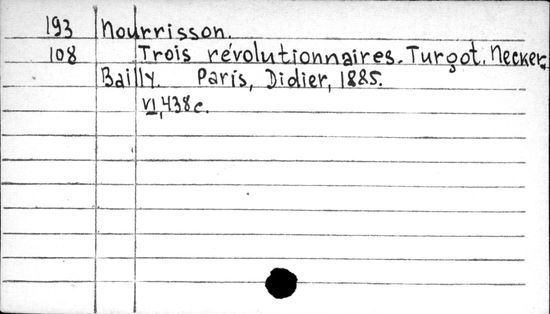 193 Nourrisson.
108 Trois révolutionnaires. Turgot. Necker,
Bailly. Paris, Didier, 1885.
VI, 438 c.